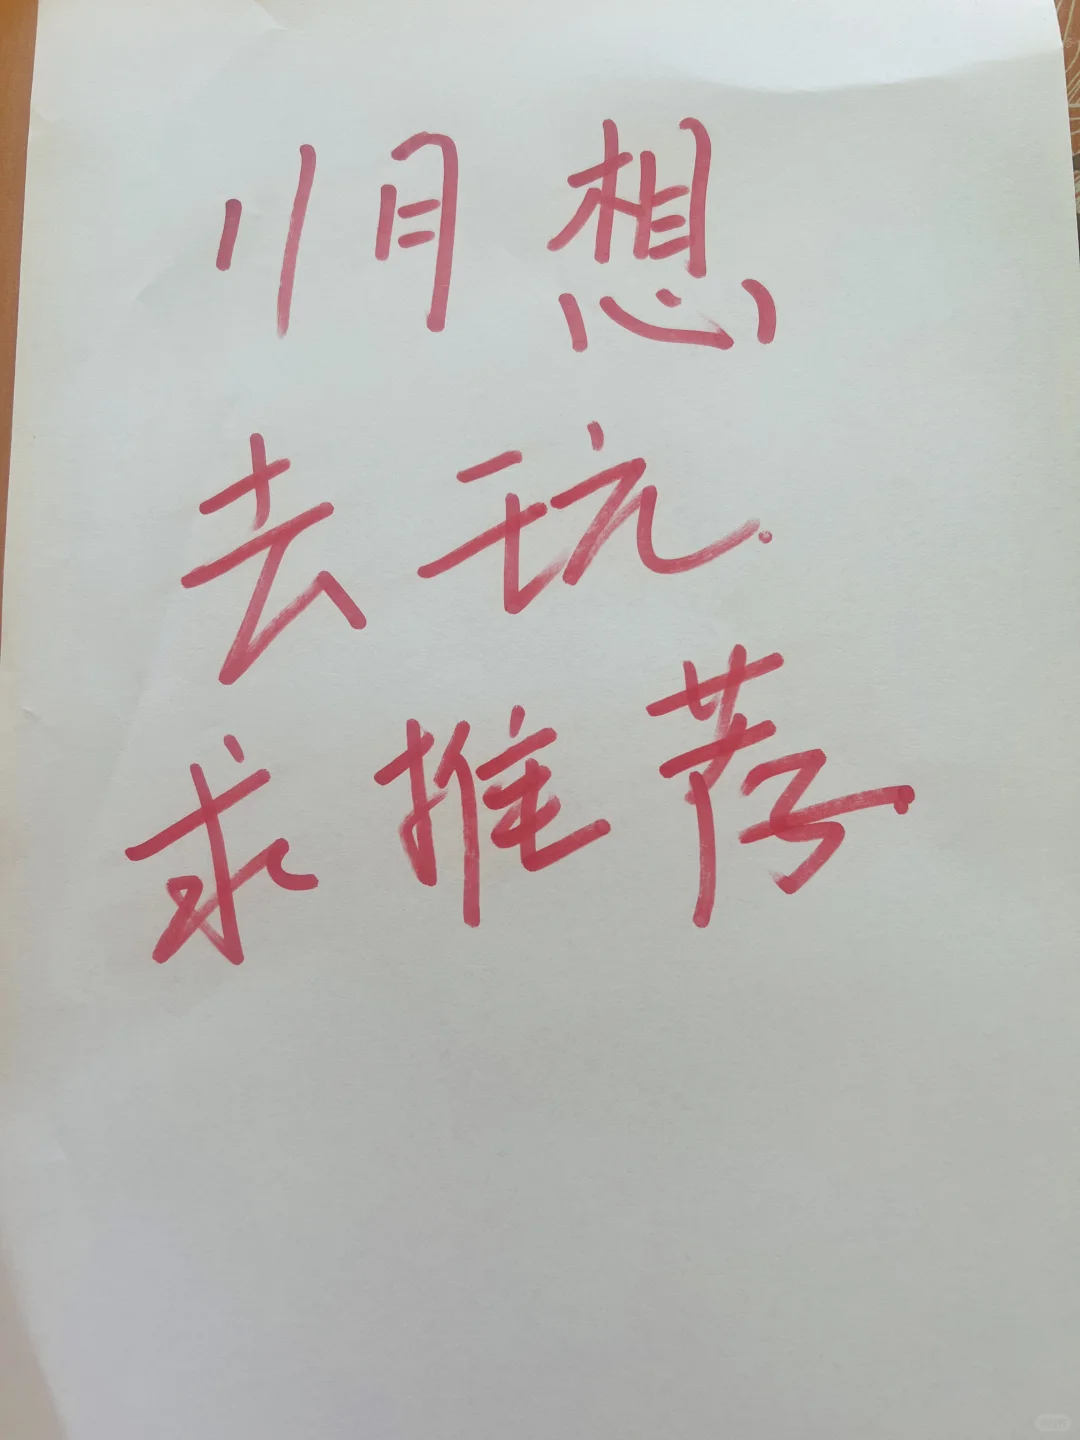 11月想
去玩.
求推荐